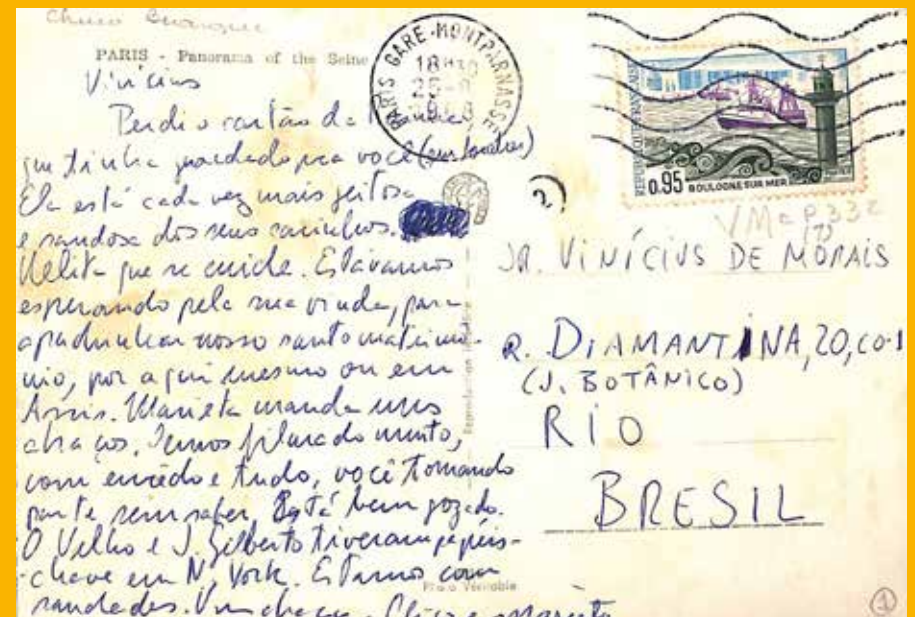 Chico Buarque
PARIS - Panorama of the Seine
Vinicius
Perdi o cartão da
que tinha guardado pra você (em Londres)
Ela está cada vez mais jeitosa
e saudosa dos seus carinhos.
Nelita que se cuide. Estávamos
esperando pela sua vinda, para
apadrinhar nosso santo matrimô-
nio, por aqui mesmo ou em
Assis. Marieta manda uns
abraços. Temos filmado muito,
com enredo e tudo, você tomando
parte sem saber. Está bem gozado.
O Velho e J. Gilberto tiveram papéis-
-chave em N. York. Estamos com
saudades. Um abraço. Chico e Marieta
PARIS GARE-MONTPARNASSE
18H30
25
REPUBLIQUE FRANÇAISE
0.95 BOULOGNE SUR MER
2
VMcP332
SR. VINÍCIUS DE MORAIS
R. DIAMANTINA, 20, CO-1
(J. BOTÂNICO)
RIO
BRESIL
Photo Véritable
1